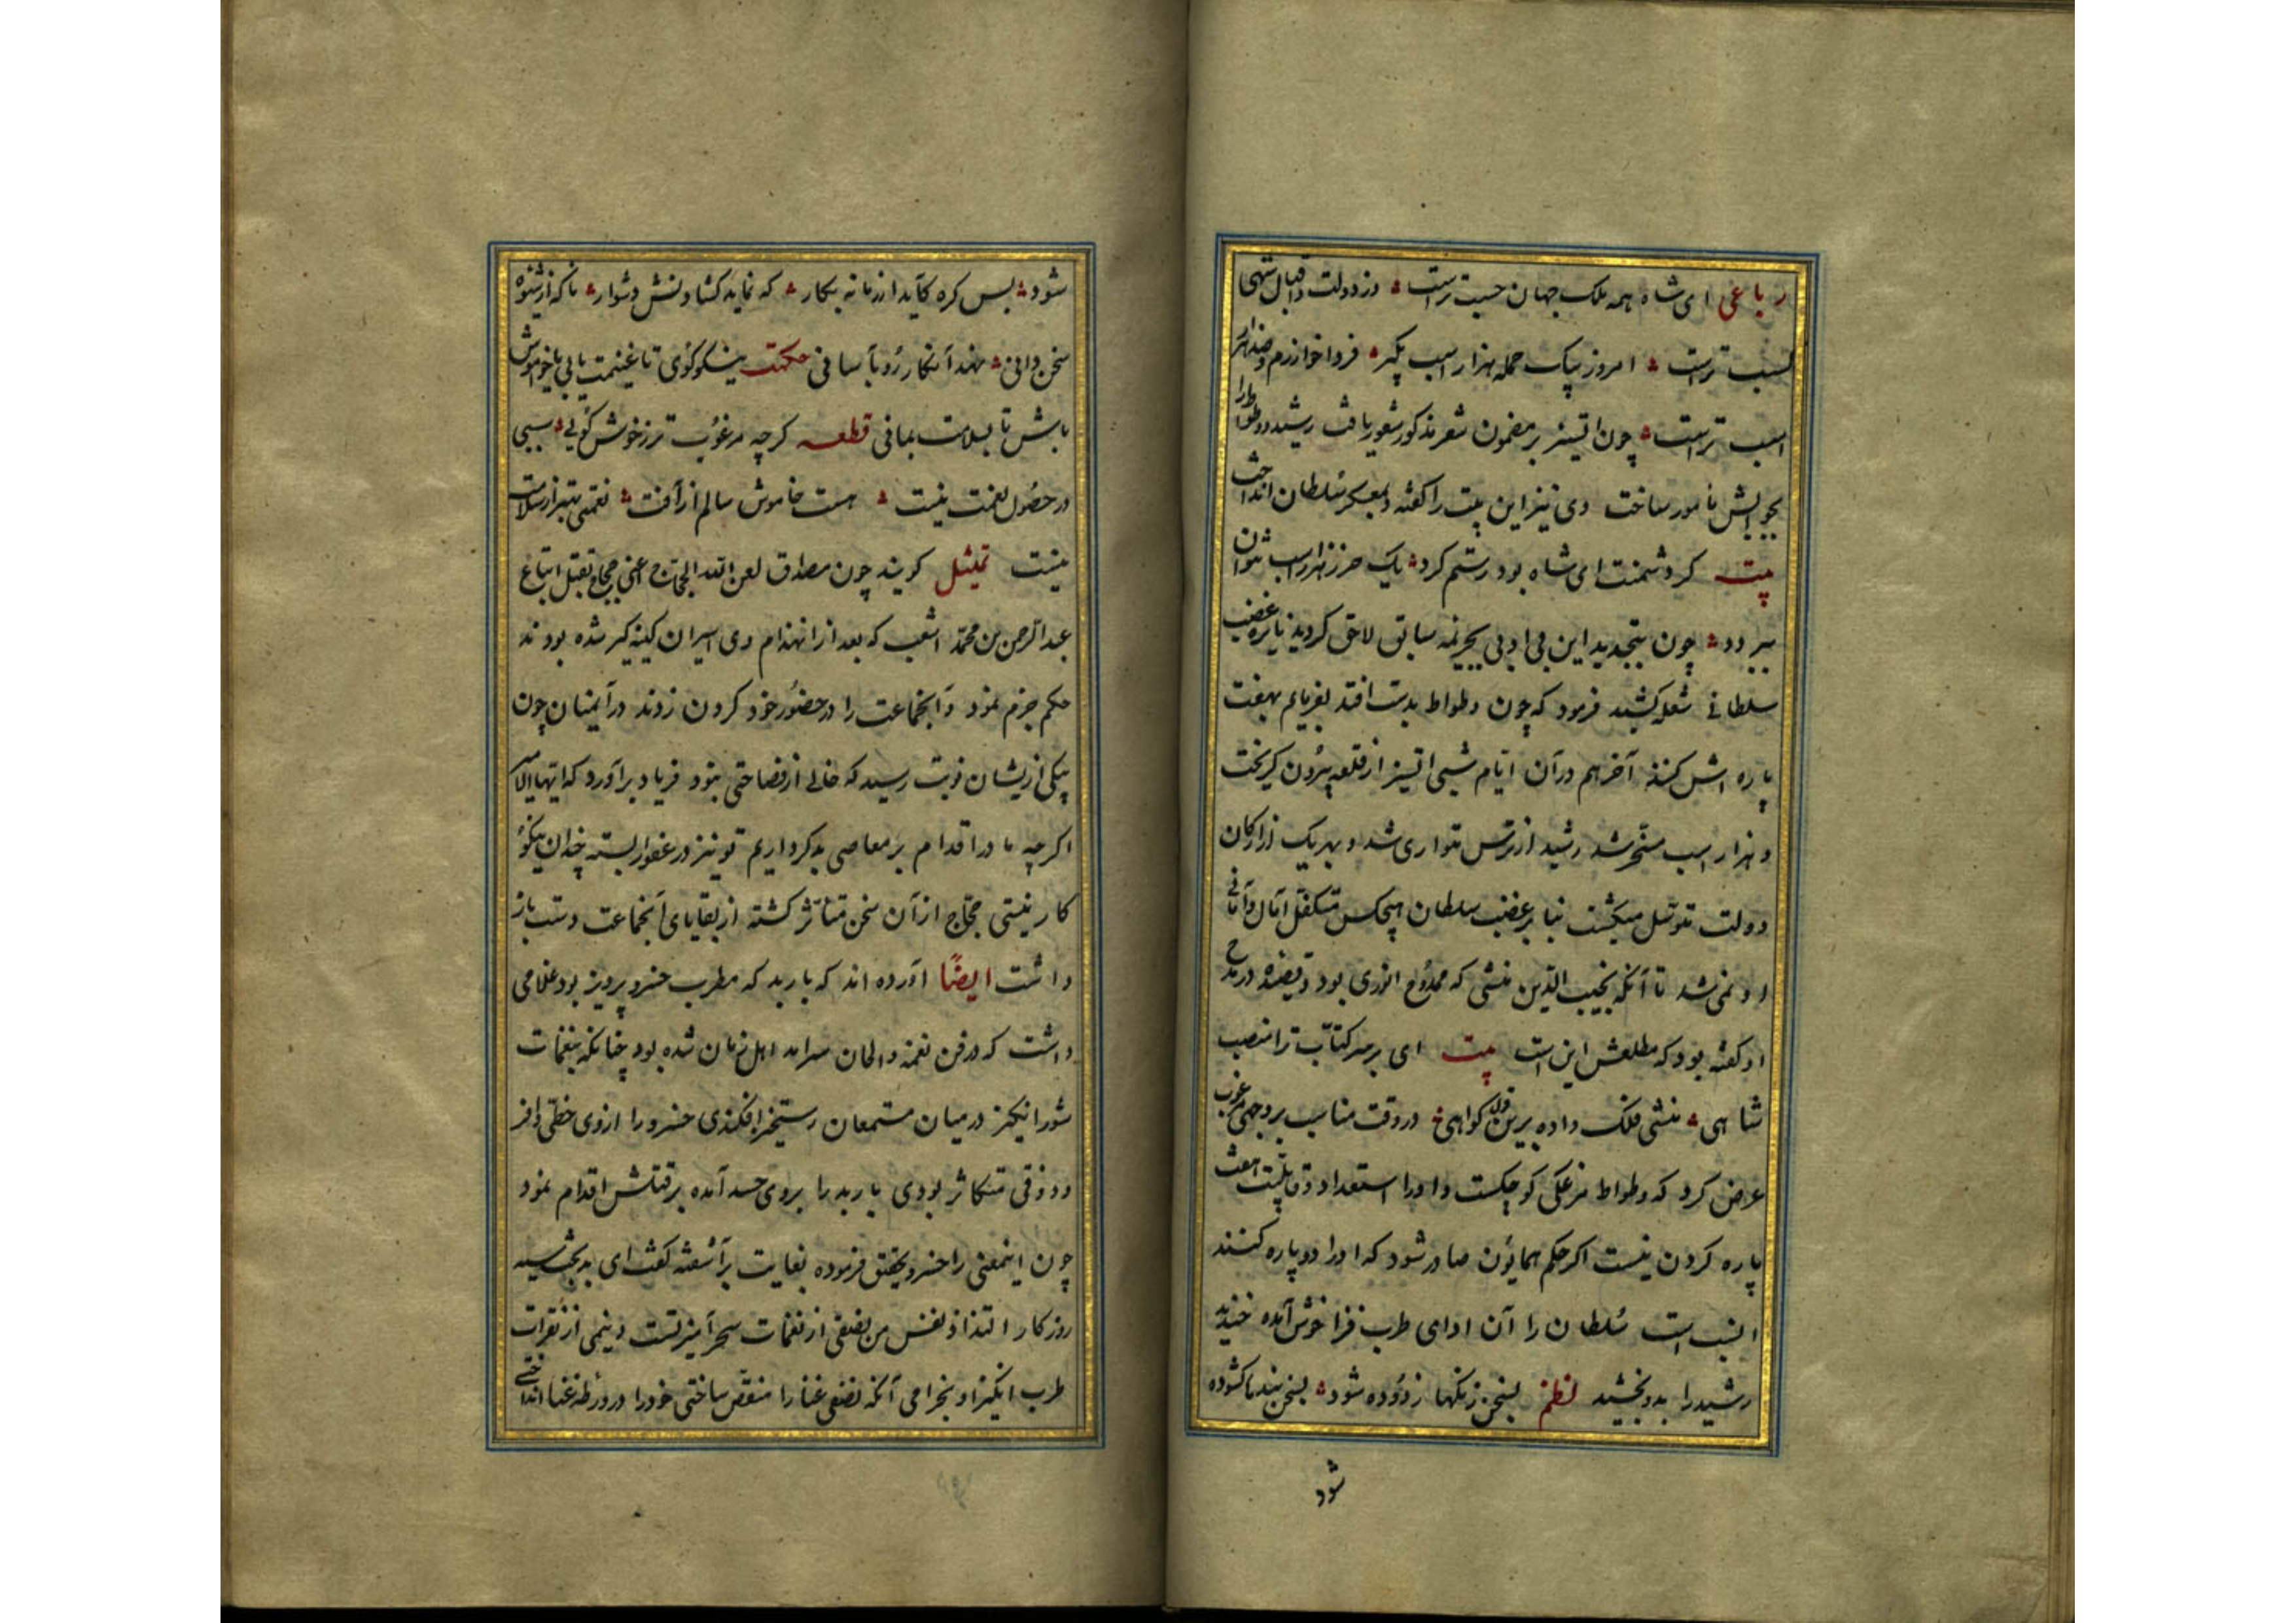 رباعی ای شاه همه ملک جهان حسب تراست وز دولت و اقبال شهی
کسب تراست امروز بیک حمله هزار اسب بگیر فردا خوارزم و صد هزار
اسب تراست چون اتسز بر مضمون شعر مذکور شعور یافت رشید وطواط را
بجوابش مامور ساخت وی نیز این بیت را گفته بمعسکر سلطان انداخت
بیت گر دشمنت ای شاه بود رستم گرد یک خر ز هزار اسب نتوان
ببرد چون بتجدید این بی ادبی بجریمه سابق لاحق گردید نایره غضب
سلطانی شعله کشید فرمود که چون وطواط بدست افتد بفرمایم بهفت
پاره اش کنند آخر هم در آن ایام شبی اتسز از قلعه بیرون گریخت
و هزار اسب مسخر شد رشید از ترس متواری شد و بهر یک از ارکان
دولت متوسل میگشت بنا بر غضب سلطان هیچکس متکفل آمال و امانی
او نمی شد تا آنکه نجیب الدین منشی که ممدوح انوری بود و قصیده در مدح
او گفته بود که مطلعش این است بیت ای بر سر کتاب ترا منصب
شاهی منشی فلک داده برین قول گواهی در وقت مناسب بر وجهی مرغوب
عرض کرد که وطواط مرغکی کوچکست و او را استعداد و قابلیت هفت
پاره کردن نیست اگر حکم همایون صادر شود که او را دو پاره کنند
انسب است سلطان را آن ادای طرب فزا خوش آمده خندید
رشید را بدو بخشید نظم بسخن زنگها زدوده شود بسخن بندها گشوده
شود
شود بس گره کآید از زمانه بکار که نماید گشادنش دشوار ناگه از شیوه
سخن دانی نهد آن کار رو بآسانی حکمت نیکو گوی تا غنیمت یابی یا خاموش
باش تا بسلامت بمانی قطعه گرچه مرغوب تر ز خوش گویی سببی
در حصول نعمت نیست هست خاموش سالم از آفت نعمتی بهتر از سلامت
نیست تمثیل گویند چون مصداق لعن الله الحجاج اعنی حجاج بقتل اتباع
عبد الرحمن بن محمد اشعب که بعد از انهزام وی اسیران کینه گیر شده بودند
حکم جزم نمود و آنجماعت را در حضور خود گردن زدند در آن اثنا چون
بیکی ازیشان نوبت رسید که خالی از فصاحتی نبود فریاد برآورد که ایها الامیر
اگرچه ما در اقدام بر معاصی بدکرداریم تو نیز در عفو البته چندان نیکو
کار نیستی حجاج از آن سخن متأثر گشته از بقایای آنجماعت دست باز
داشت ایضا آورده اند که باربد که مطرب خسرو پرویز بود غلامی
داشت که در فن نغمه و الحان سرآمد اهل زمان شده بود چنانکه بنغمات
شورانگیز در میان مستمعان رستخیز افکندی خسرو را ازوی حظی وافر
و ذوقی متکاثر بودی باربد را بروی حسد آمده بر قتلش اقدام نمود
چون اینمعنی را خسرو تحقیق فرموده بغایت برآشفته گفت ای بدبخت سیه
روزگار التذاذ نفس من نصفی از نغمات سحر آمیز تست و نیمی از نقرات
طرب انگیز او بخرامی آنکه نصفی غنا را منغص ساختی خود را در ورطه عنا انداختی